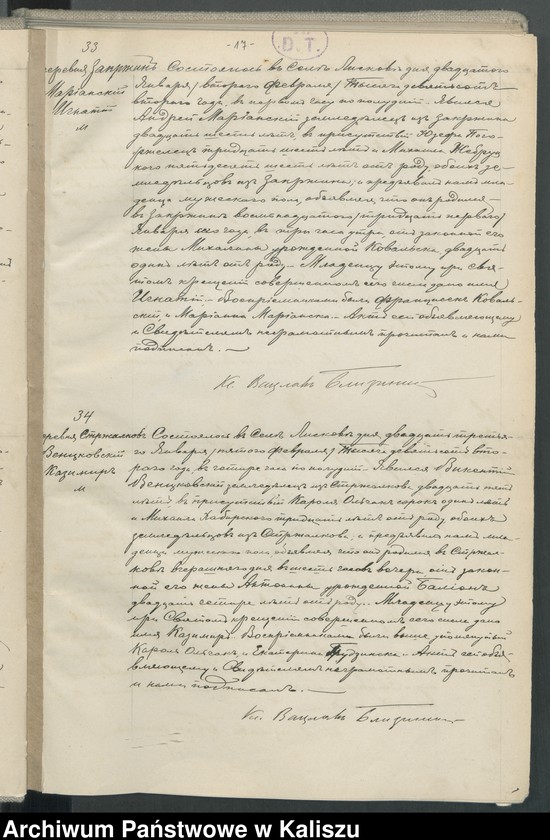 33
-17-
D.T.
деревня Закржинъ
Маріанскій
Игнатій
м
Состоялось въ Селѣ Лисковѣ дня двадцатого
Января /второго Февраля/ тысяча девятьсотъ
второго года, въ первомъ часу по полудни. Явился
Андрей Маріанскій земледѣлецъ изъ Закржина
двадцати шести лѣтъ, въ присутствіи Юзефа
тридцати шести лѣтъ и Михаила
пятидесяти шести лѣтъ отъ роду, обоихъ зе-
мледѣльцовъ изъ Закржина, и предъявилъ намъ мла-
денца мужеского пола, объявляя что онъ родился
въ Закржинѣ восемнадцатого /тридцать перваго/
Января сего года въ три часа утра, отъ законной его
жены Михалины урожденной Ковальска, двадцати
одна лѣтъ отъ роду. Младенцу этому при Свя-
томъ крещеніи совершенномъ сего числа дано имя
Игнатій. Воспріемниками были Францишекъ Коваль-
скій и Маріанна Маріанска. Актъ сей объявляющему
и Свидѣтелямъ неграмотнымъ прочитанъ и нами
подписанъ. —
Кс. Вацлавъ Близинскій
34
деревня Стржалковъ
Венцковскій
Казимиръ
м
Состоялось въ Селѣ Лисковѣ дня двадцать третья-
го Января /пятого Февраля/ тысяча девятьсотъ вто-
рого года, въ четыре часа по полудни. Явился Викентій
Венцковскій земледѣлецъ изъ Стржалкова двадцати пяти
лѣтъ, въ присутствіи Кароля Ольчакъ сорокъ одна лѣтъ
и Михаила тридцати лѣтъ отъ роду обоихъ
земледѣльцовъ изъ Стржалкова, и предъявилъ намъ мла-
денца мужеского пола объявляя что онъ родился въ Стржал-
ковѣ вчерашнего дня въ шесть часовъ вечера отъ закон-
ной его жены Антонины урожденной
двадцати четыре лѣтъ отъ роду. Младенцу этому
при Святомъ крещеніи совершенномъ сего числа дано
имя Казимиръ. Воспріемниками были выше упомянутый
Кароль Ольчакъ и Екатерина Грудзинска. Актъ сей объя-
вляющему и Свидѣтелямъ неграмотнымъ прочитанъ
и нами подписанъ. —
Кс. Вацлавъ Близинскій
Archiwum Państwowe w Kaliszu